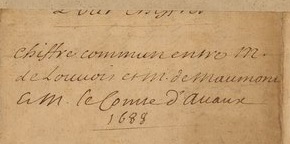 Chiffre commun entre M.
de Louvois et M. de Maumont
& M. le Comte d'Avaux
1688